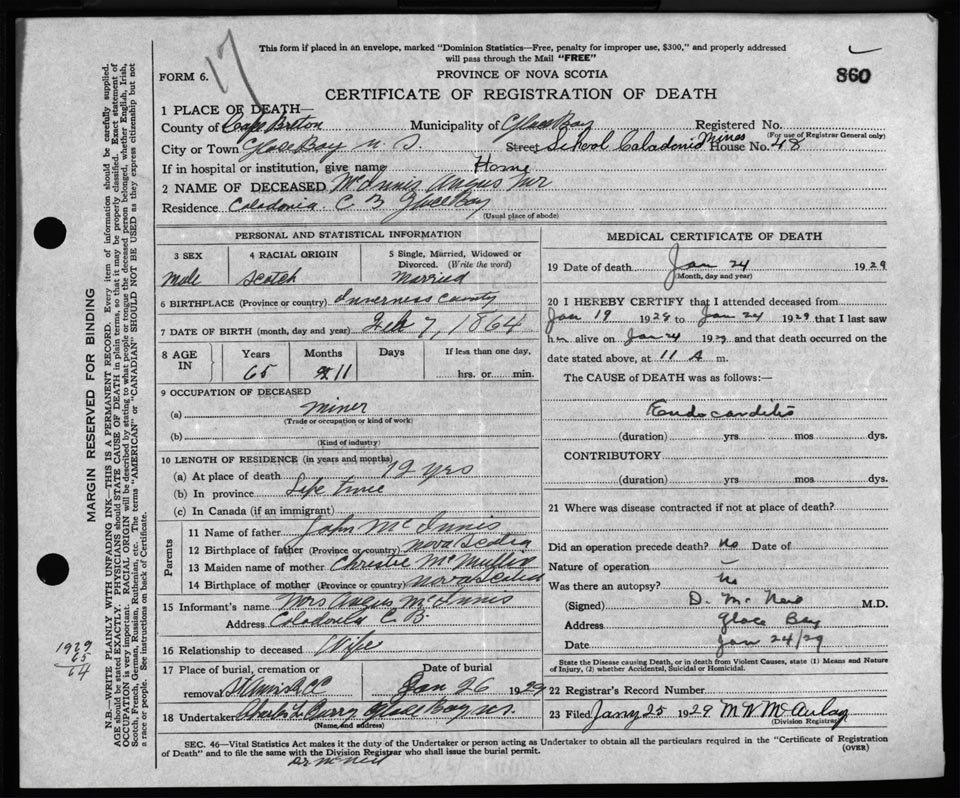 17
This form if placed in an envelope, marked "Dominion Statistics—Free, penalty for improper use, $300," and properly addressed
will pass through the Mail "FREE"
FORM 6.
PROVINCE OF NOVA SCOTIA
860
CERTIFICATE OF REGISTRATION OF DEATH
1 PLACE OF DEATH—
County of Cape Breton Municipality of Glace Bay Registered No.
(For use of Registrar General only)
City or Town Glace Bay N. S. Street School Caladonia Mines House No. 48
If in hospital or institution, give name Home
2 NAME OF DECEASED McInnis Angus Mr
Residence Caladonia C B Glace Bay
(Usual place of abode)
PERSONAL AND STATISTICAL INFORMATION
3 SEX
Male
4 RACIAL ORIGIN
Scotch
5 Single, Married, Widowed or
Divorced. (Write the word)
Married
6 BIRTHPLACE (Province or country) Inverness County
7 DATE OF BIRTH (month, day and year) Feb 7, 1864
8 AGE
IN
Years
65
Months
11
Days
If less than one day,
hrs. or min.
9 OCCUPATION OF DECEASED
(a) Miner
(Trade or occupation or kind of work)
(b)
(Kind of industry)
10 LENGTH OF RESIDENCE (in years and months)
(a) At place of death 19 yrs
(b) In province Life time
(c) In Canada (if an immigrant)
Parents
11 Name of father John McInnis
12 Birthplace of father (Province or country) Nova Scotia
13 Maiden name of mother Christie McMullin
14 Birthplace of mother (Province or country) Nova Scotia
15 Informant's name Mrs Angus McInnis
Address Caladonia C. B.
16 Relationship to deceased Wife
17 Place of burial, cremation or
removal
Date of burial
Jan 26 1929
18 Undertaker Charles L. Curry Glace Bay NS
(Name and address)
MEDICAL CERTIFICATE OF DEATH
19 Date of death Jan 24 1929
(Month, day and year)
20 I HEREBY CERTIFY that I attended deceased from
Jan 19 1929 to Jan 24 1929 that I last saw
him alive on Jan 24 1929 and that death occurred on the
date stated above, at 11 A m.
The CAUSE of DEATH was as follows:—
Endocarditis
(duration) yrs. mos dys.
CONTRIBUTORY
(duration) yrs. mos. dys.
21 Where was disease contracted if not at place of death?
Did an operation precede death? No Date of
Nature of operation —
Was there an autopsy? No
(Signed) D. McNeil M.D.
Address Glace Bay
Date Jan 24/29
State the Disease causing Death, or in death from Violent Causes, state (1) Means and Nature
of Injury, (2) whether Accidental, Suicidal or Homicidal.
22 Registrar's Record Number
23 Filed Jany 25 1929 M N McAulay
(Division Registrar)
SEC. 46—Vital Statistics Act makes it the duty of the Undertaker or person acting as Undertaker to obtain all the particulars required in the "Certificate of Registration
of Death" and to file the same with the Division Registrar who shall issue the burial permit.
(OVER)
Dr McNeil
MARGIN RESERVED FOR BINDING
N.B.—WRITE PLAINLY WITH UNFADING INK—THIS IS A PERMANENT RECORD. Every item of information should be carefully supplied.
AGE should be stated EXACTLY. PHYSICIANS should STATE CAUSE OF DEATH in plain terms, so that it may be properly classified. Exact statement of
OCCUPATION is very important. RACIAL ORIGIN will be described by stating to what people or tongue the deceased person belonged, whether English, Irish,
Scotch, French, German, Russian, Ruthenian, etc. The terms "AMERICAN" or "CANADIAN" SHOULD NOT BE USED as they express citizenship but not
a race or people. See instructions on back of Certificate.
1929
65
64